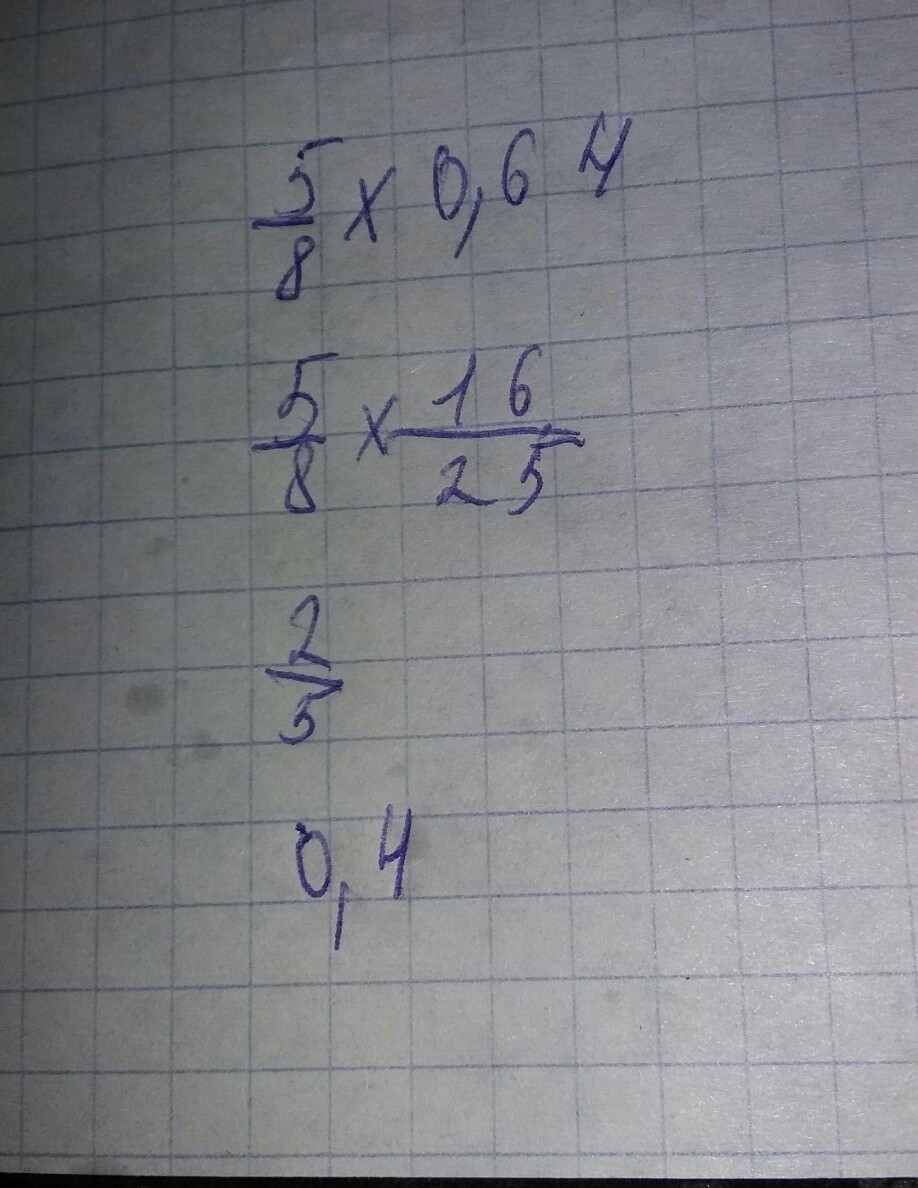 5/8 x 0,64
5/8 x 16/25
2/5
0,4